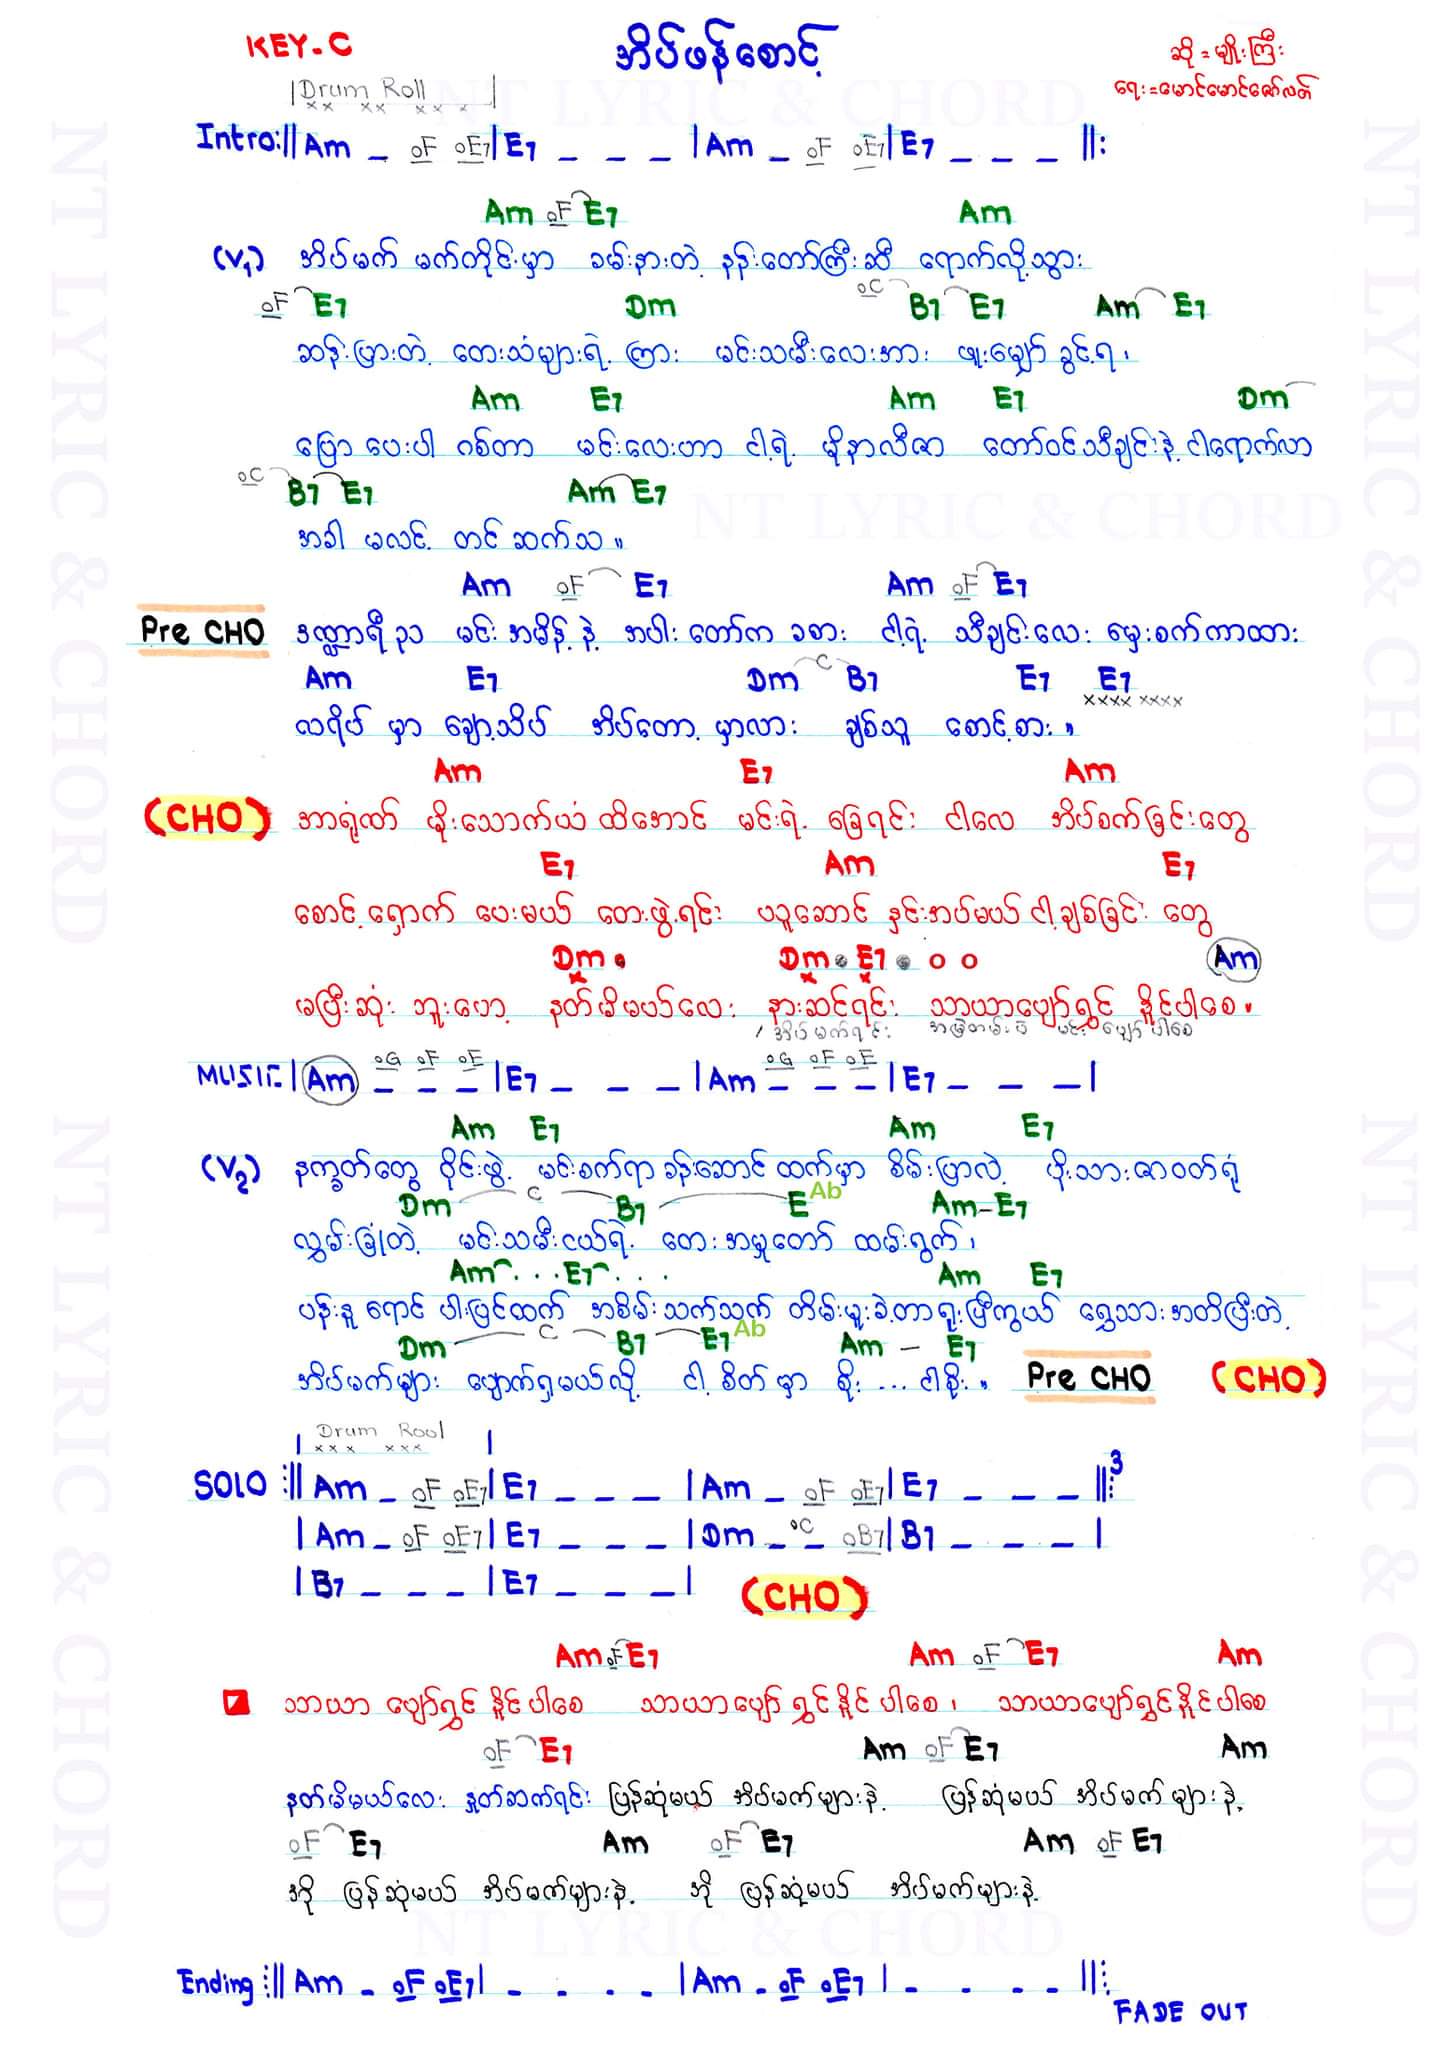 KEY-C
အိပ်ဖန်စောင့်
ဆို = မျိုးကြီး
ရေး = မောင်မောင်ဇော်လတ်
Drum Roll
xx xx xx x
Intro: || Am _ oF oE7 | E7 _ _ _ | Am _ oF oE7 | E7 _ _ _ ||:
Am oF E7 Am
(V1) အိပ်မက် မက်တိုင်းမှာ ခမ်းနားတဲ့ နန်းတော်ကြီးဆီ ရောက်လို့သွား
oF E7 Dm oC B7 E7 Am E7
ဆန်းပြားတဲ့ တေးသံများရဲ့ ကြား မင်းသမီးလေးအား ဖူးမျှော်ခွင့်ရ ၊
Am E7 Am E7 Dm
ပြောပေးပါ ဂစ်တာ မင်းလေးဟာ ငါ့ရဲ့ မိုနာလီဇာ တော်ဝင်သီချင်းနဲ့ ငါရောက်လာ
oC B7 E7 Am E7
အခါ မလင့် တင်ဆက်သ ။
Am oF E7 Am oF E7
Pre CHO ဒဏ္ဍာရီဥသ မင်းအမိန့်နဲ့ အပါးတော်က ခစား ငါ့ရဲ့ သီချင်းလေး မှေးစက်ကာထား
Am E7 Dm C B7 E7 E7
xxxx xxxx
လရိပ် မှာ ချော့သိပ် အိပ်တော့မှာလား ချစ်သူ စောင့်စား ။
Am E7 Am
(CHO) အာရုံဏ် မိုးသောက်ယံ ထိအောင် မင်းရဲ့ ခြေရင်း ငါလေ အိပ်စက်ခြင်းတွေ
E7 Am E7
စောင့်ရှောက် ပေးမယ် တေးဖွဲ့ရင်း ပဥူဆောင် နှင်းအပ်မယ် ငါ့ချစ်ခြင်း တွေ
Dm • Dm • E7 • o o Am
မပြီးဆုံး ဘူးဟော့ နတ်မိမယ်လေး နားဆင်ရင်း သာယာပျော်ရွှင် နိုင်ပါစေ။
/ အိပ်မက်ရင်း မင်း ပျော်ပါစေ
MUSIC | Am oG oF oE | E7 _ _ _ | Am oG oF oE | E7 _ _ _ |
Am E7 Am E7
(V2) နက္ခတ်တွေ ဝိုင်းဖွဲ့ မင်းစက်ရာခန်းဆောင် ထက်မှာ စိမ်းပြာလဲ့ ပိုးသားဇာဝတ်ရုံ
Dm C B7 E Ab Am-E7
လွှမ်းခြုံတဲ့ မင်းသမီးငယ်ရဲ့ တေးအမှုတော် ထမ်းရွက် ၊
Am . . . E7 . . . Am E7
ပန်းနုရောင် ပါးပြင်ထက် အစိမ်းသက်သက် တိမ်းမူးခဲ့တာရူးပြီကွယ် ရွှေသားအတိပြီးတဲ့
Dm C B7 E7 Ab Am – E7
အိပ်မက်များ ပျောက်ရှမယ်လို့ ငါ့ စိတ်မှာ စိုး ... ငါစိုး ။ Pre CHO (CHO)
Drum Rool
xxx xxx
SOLO :|| Am _ oF oE7 | E7 _ _ _ | Am _ oF oE7 | E7 _ _ _ ||: 3
| Am _ oF oE7 | E7 _ _ _ | Dm _ oC _ oB7 | B7 _ _ _ |
| B7 _ _ _ | E7 _ _ _ | (CHO)
Am oF E7 Am oF E7 Am
သာယာ ပျော်ရွှင် နိုင်ပါစေ သာယာပျော်ရွှင်နိုင်ပါစေ ၊ သာယာပျော်ရွှင်နိုင်ပါစေ
oF E7 Am oF E7 Am
နတ်မိမယ်လေး နှုတ်ဆက်ရင်း ပြန်ဆုံမယ် အိပ်မက်များနဲ့ ပြန်ဆုံမယ် အိပ်မက်များနဲ့
oF E7 Am oF E7 Am oF E7
အို ပြန်ဆုံမယ် အိပ်မက်များနဲ့ အို ပြန်ဆုံမယ် အိပ်မက်များနဲ့
Ending :|| Am _ oF oE7 | _ _ _ _ | Am _ oF oE7 | _ _ _ _ ||:
FADE OUT
NT LYRIC & CHORD